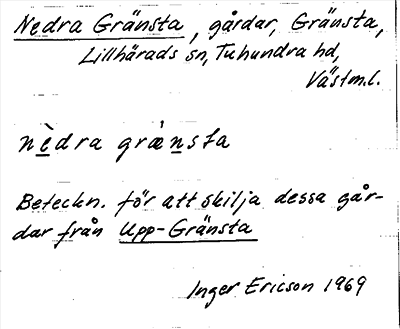 Nedra Gränsta, gårdar, Gränsta,
Lillhärads sn, Tuhundra hd,
Västm.l.
nèdra grànsta
Beteckn. för att skilja dessa går-
dar från Upp-Gränsta
Inger Ericson 1969